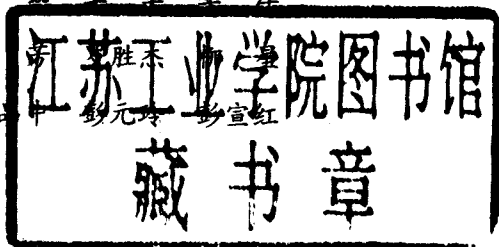 江苏工业学院图书馆
藏书章
胜杰
中 彭元玲 彭宣红